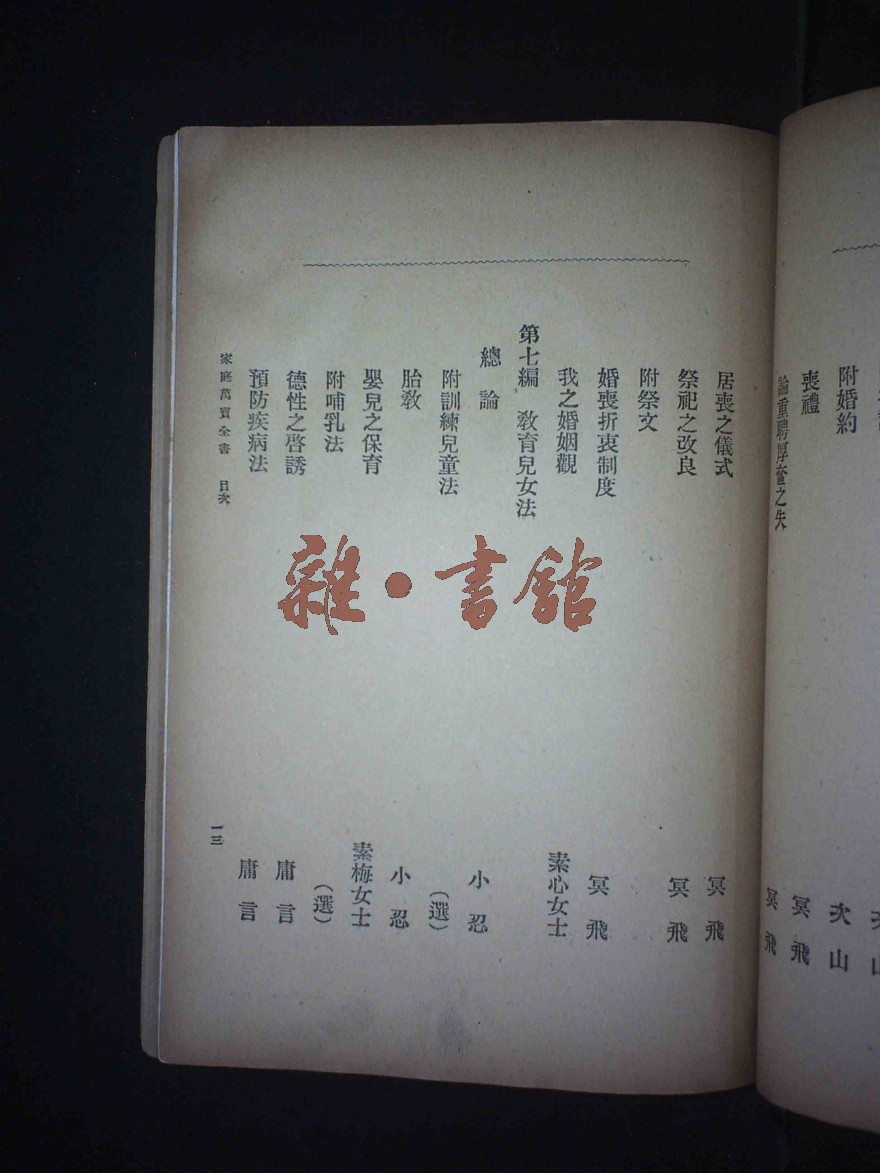 附婚約 次山
喪禮 冥飛
論重聘厚奩之失 冥飛
居喪之儀式 冥飛
祭祀之改良 冥飛
附祭文
婚喪折衷制度 冥飛
我之婚姻觀 素心女士
第七編 教育兒女法
總論 小忍
附訓練兒童法 (選)
胎教 小忍
嬰兒之保育 素梅女士
附哺乳法 (選)
德性之啓誘 庸言
預防疾病法 庸言
家庭萬寶全書 目次 一三
雜·書館